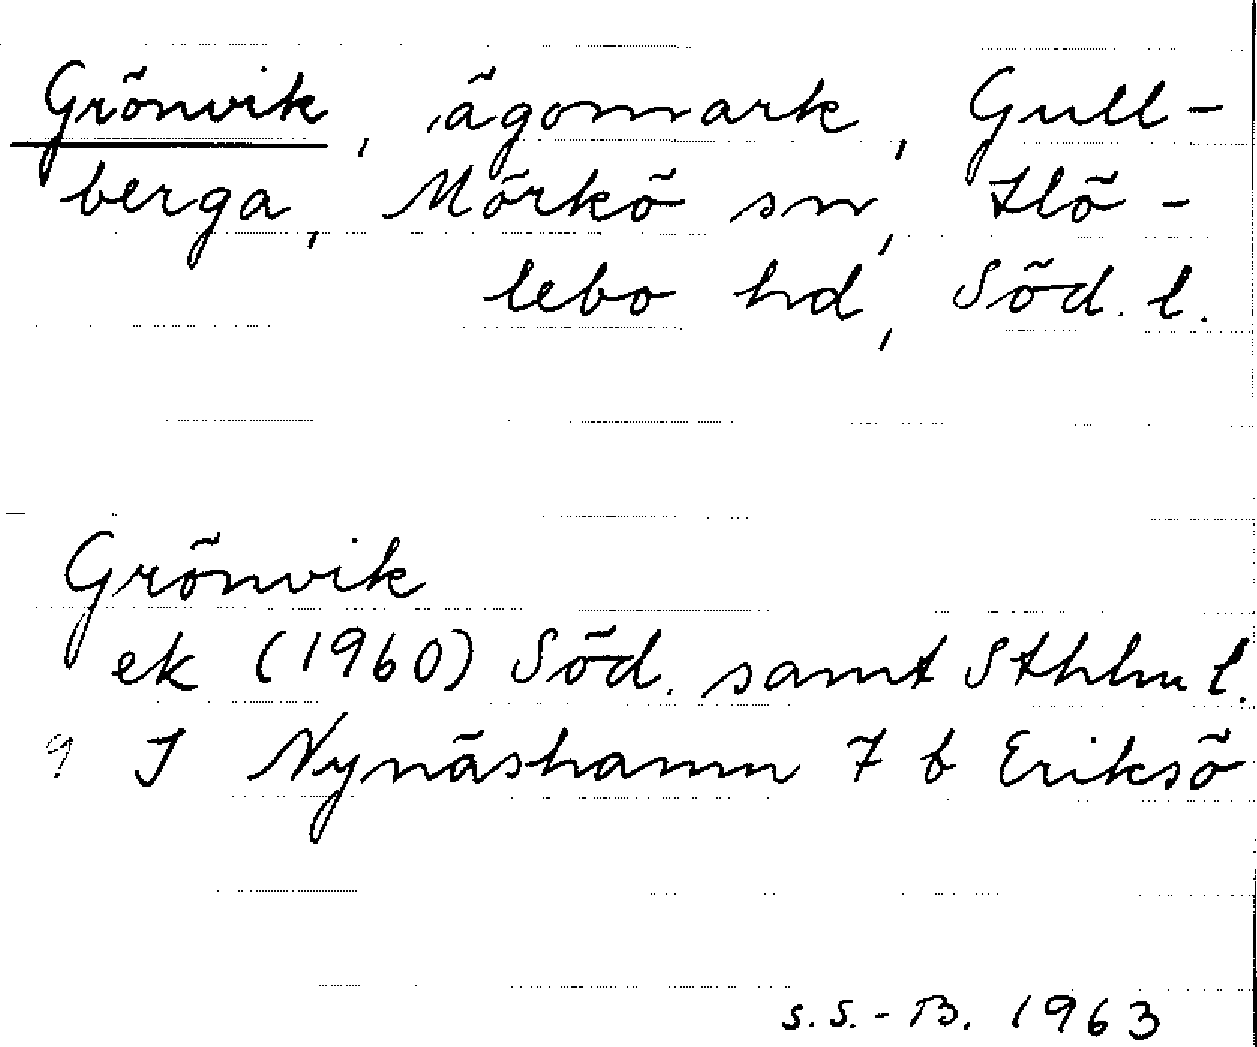 Grönvik, ägomark, Gull-
berga, Mörkö sn, Hö-
lebo hd, Söd. l.
Grönvik
ek (1960) Söd. samt Sthlm l.
9 J Nynäshamn 7 b Eriksö
S.S.-B. 1963